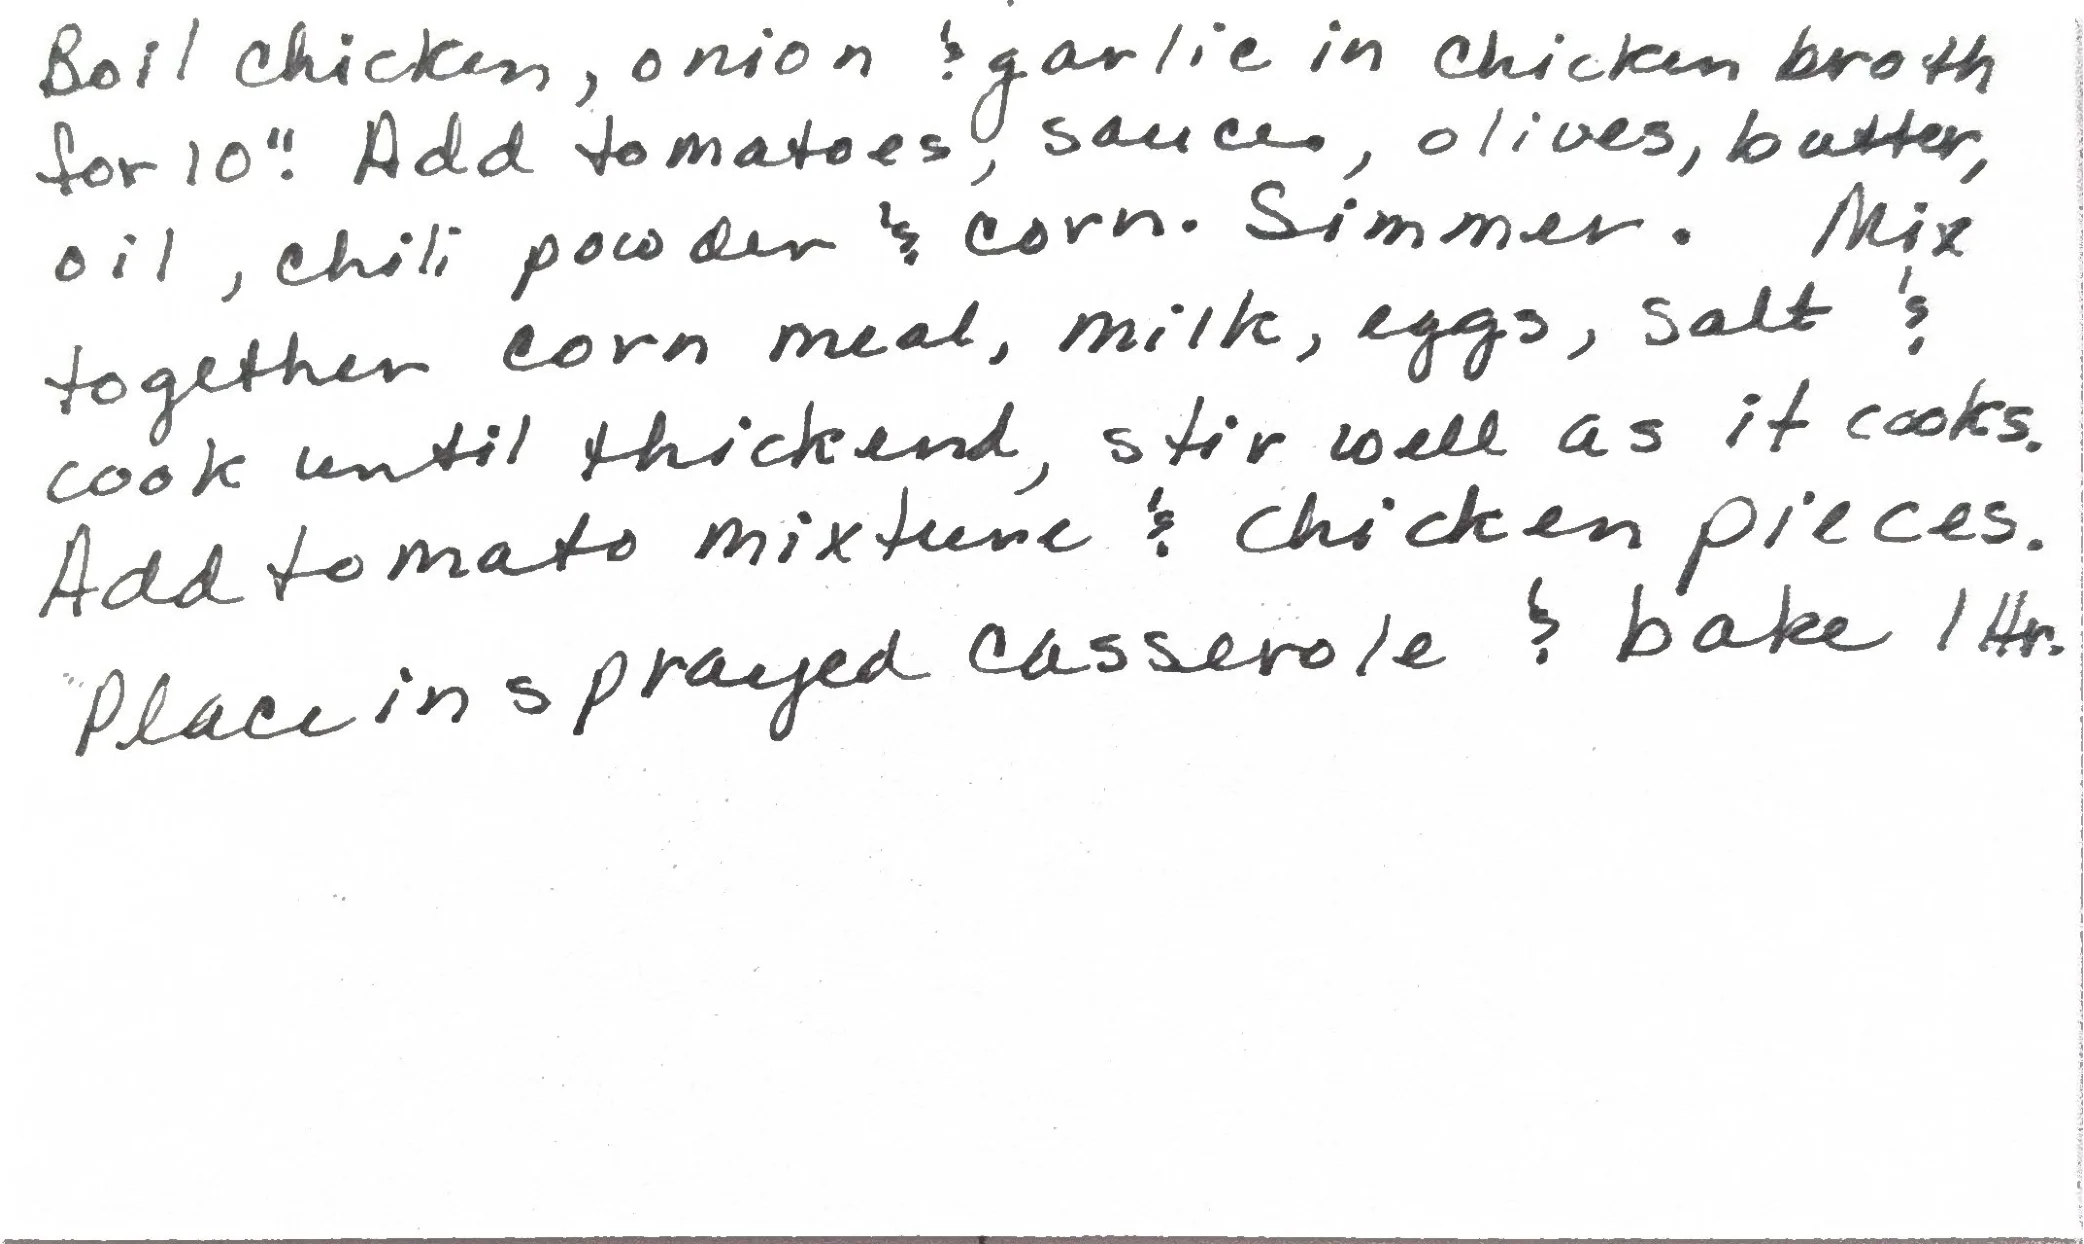 Boil chicken, onion & garlic in chicken broth
for 10". Add tomatoes, sauce, olives, butter,
oil, chili powder & corn. Simmer. Mix
together corn meal, milk, eggs, salt &
cook until thickend, stir well as it cooks.
Add tomato mixture & chicken pieces.
Place in sprayed casserole & bake 1 Hr.